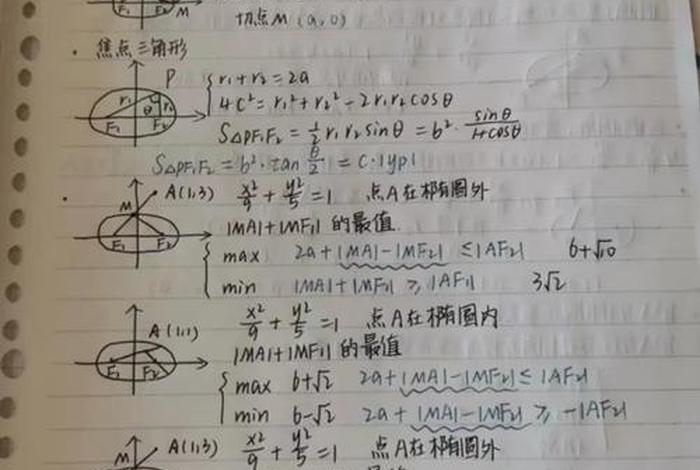 F₁ F₂ M
切点M (a,0)
· 焦点三角形
P r₁ r₂ θ F₁ F₂
r₁+r₂=2a
4c²=r₁²+r₂²-2r₁r₂cosθ
S△PF₁F₂=½r₁r₂sinθ=b²·sinθ/1+cosθ
S△PF₁F₂=b²·tan θ/2=c·|yp|
· M A(1,3) F₁ F₂ x²/9+y²/5=1 点A在椭圆外
|MA|+|MF₁|的最值
max 2a+|MA|-|MF₂| ≤|AF₂| 6+√10
min |MA|+|MF₁|≥|AF₁| 3√2
A(1,1) F₁ F₂ x²/9+y²/5=1 点A在椭圆内
|MA|+|MF₁|的最值
max 6+√2 2a+|MA|-|MF₂|≤|AF₂|
min 6-√2 2a+|MA|-|MF₂|≥-|AF₂|
M A(1,3) x²/9+y²/5=1 点A在椭圆外